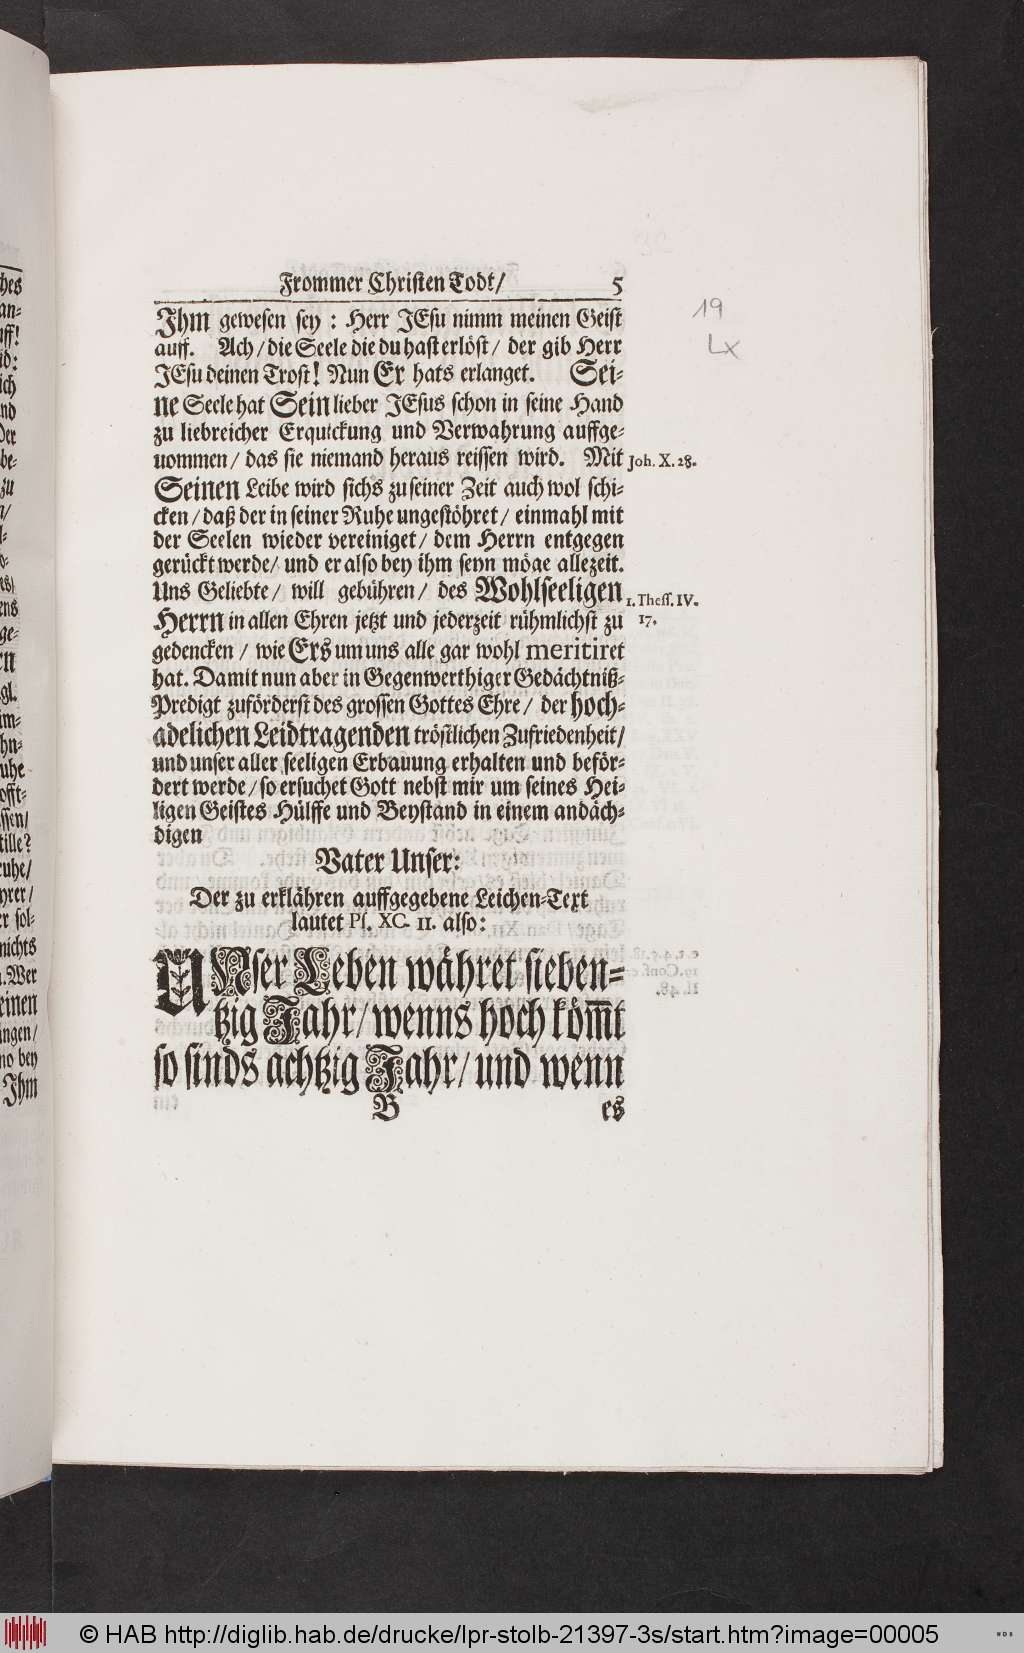 Frommer Christen Todt/ 5
Ihm gewesen sey : Herr JEsu nimm meinen Geist
auff. Ach/ die Seele die du hast erlöst/ der gib Herr
JEsu deinen Trost! Nun Er hats erlanget. Sei-
ne Seele hat Sein lieber JEsus schon in seine Hand
zu liebreicher Erquickung und Verwahrung auffge-
uommen/ das sie niemand heraus reissen wird. Mit
Joh. X. 28.
Seinen Leibe wird sichs zu seiner Zeit auch wol schi-
cken/ daß der in seiner Ruhe ungestöhret/ einmahl mit
der Seelen wieder vereiniget/ dem Herrn entgegen
gerückt werde/ und er also bey ihm seyn möge allezeit.
Uns Geliebte/ will gebühren/ des Wohlseeligen
1. Thess. IV.
17.
Herrn in allen Ehren jetzt und jederzeit rühmlichst zu
gedencken/ wie Ers um uns alle gar wohl meritiret
hat. Damit nun aber in Gegenwerthiger Gedächtniß-
Predigt zuförderst des grossen Gottes Ehre/ der hoch-
adelichen Leidtragenden tröstlichen Zufriedenheit/
und unser aller seeligen Erbauung erhalten und beför-
dert werde/ so ersuchet Gott nebst mir um seines Hei-
ligen Geistes Hülffe und Beystand in einem andäch-
digen
Vater Unser:
Der zu erklähren auffgegebene Leichen-Text
lautet Ps. XC. II. also:
UNser Leben währet sieben-
tzig Jahr/ wenns hoch kömmt
so sinds achtzig Jahr/ und wenn
B es
19
Lx
© HAB http://diglib.hab.de/drucke/lpr-stolb-21397-3s/start.htm?image=00005